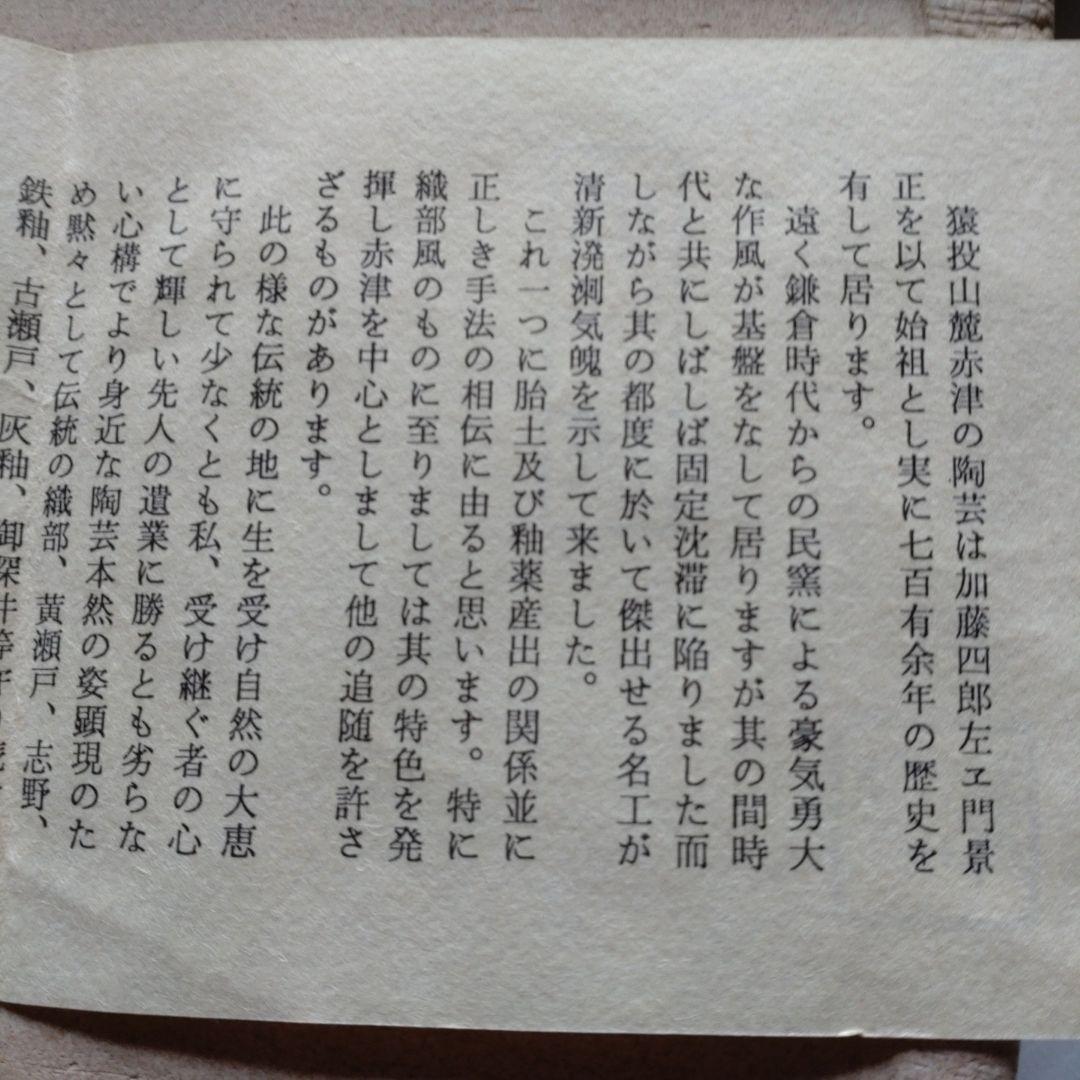 猿投山麓赤津の陶芸は加藤四郎左ヱ門景
正を以て始祖とし実に七百有余年の歴史を
有して居ります。
遠く鎌倉時代からの民窯による豪気勇大
な作風が基盤をなして居りますが其の間時
代と共にしばしば固定沈滞に陥りました而
しながら其の都度に於いて傑出せる名工が
清新溌溂気魄を示して来ました。
これ一つに胎土及び釉薬産出の関係並に
正しき手法の相伝に由ると思います。特に
織部風のものに至りましては其の特色を発
揮し赤津を中心としまして他の追随を許さ
ざるものがあります。
此の様な伝統の地に生を受け自然の大恵
に守られて少なくとも私、受け継ぐ者の心
として輝しい先人の遺業に勝るとも劣らな
い心構でより身近な陶芸本然の姿顕現のた
め黙々として伝統の織部、黄瀬戸、志野、
鉄釉、古瀬戸、灰釉、御深井等